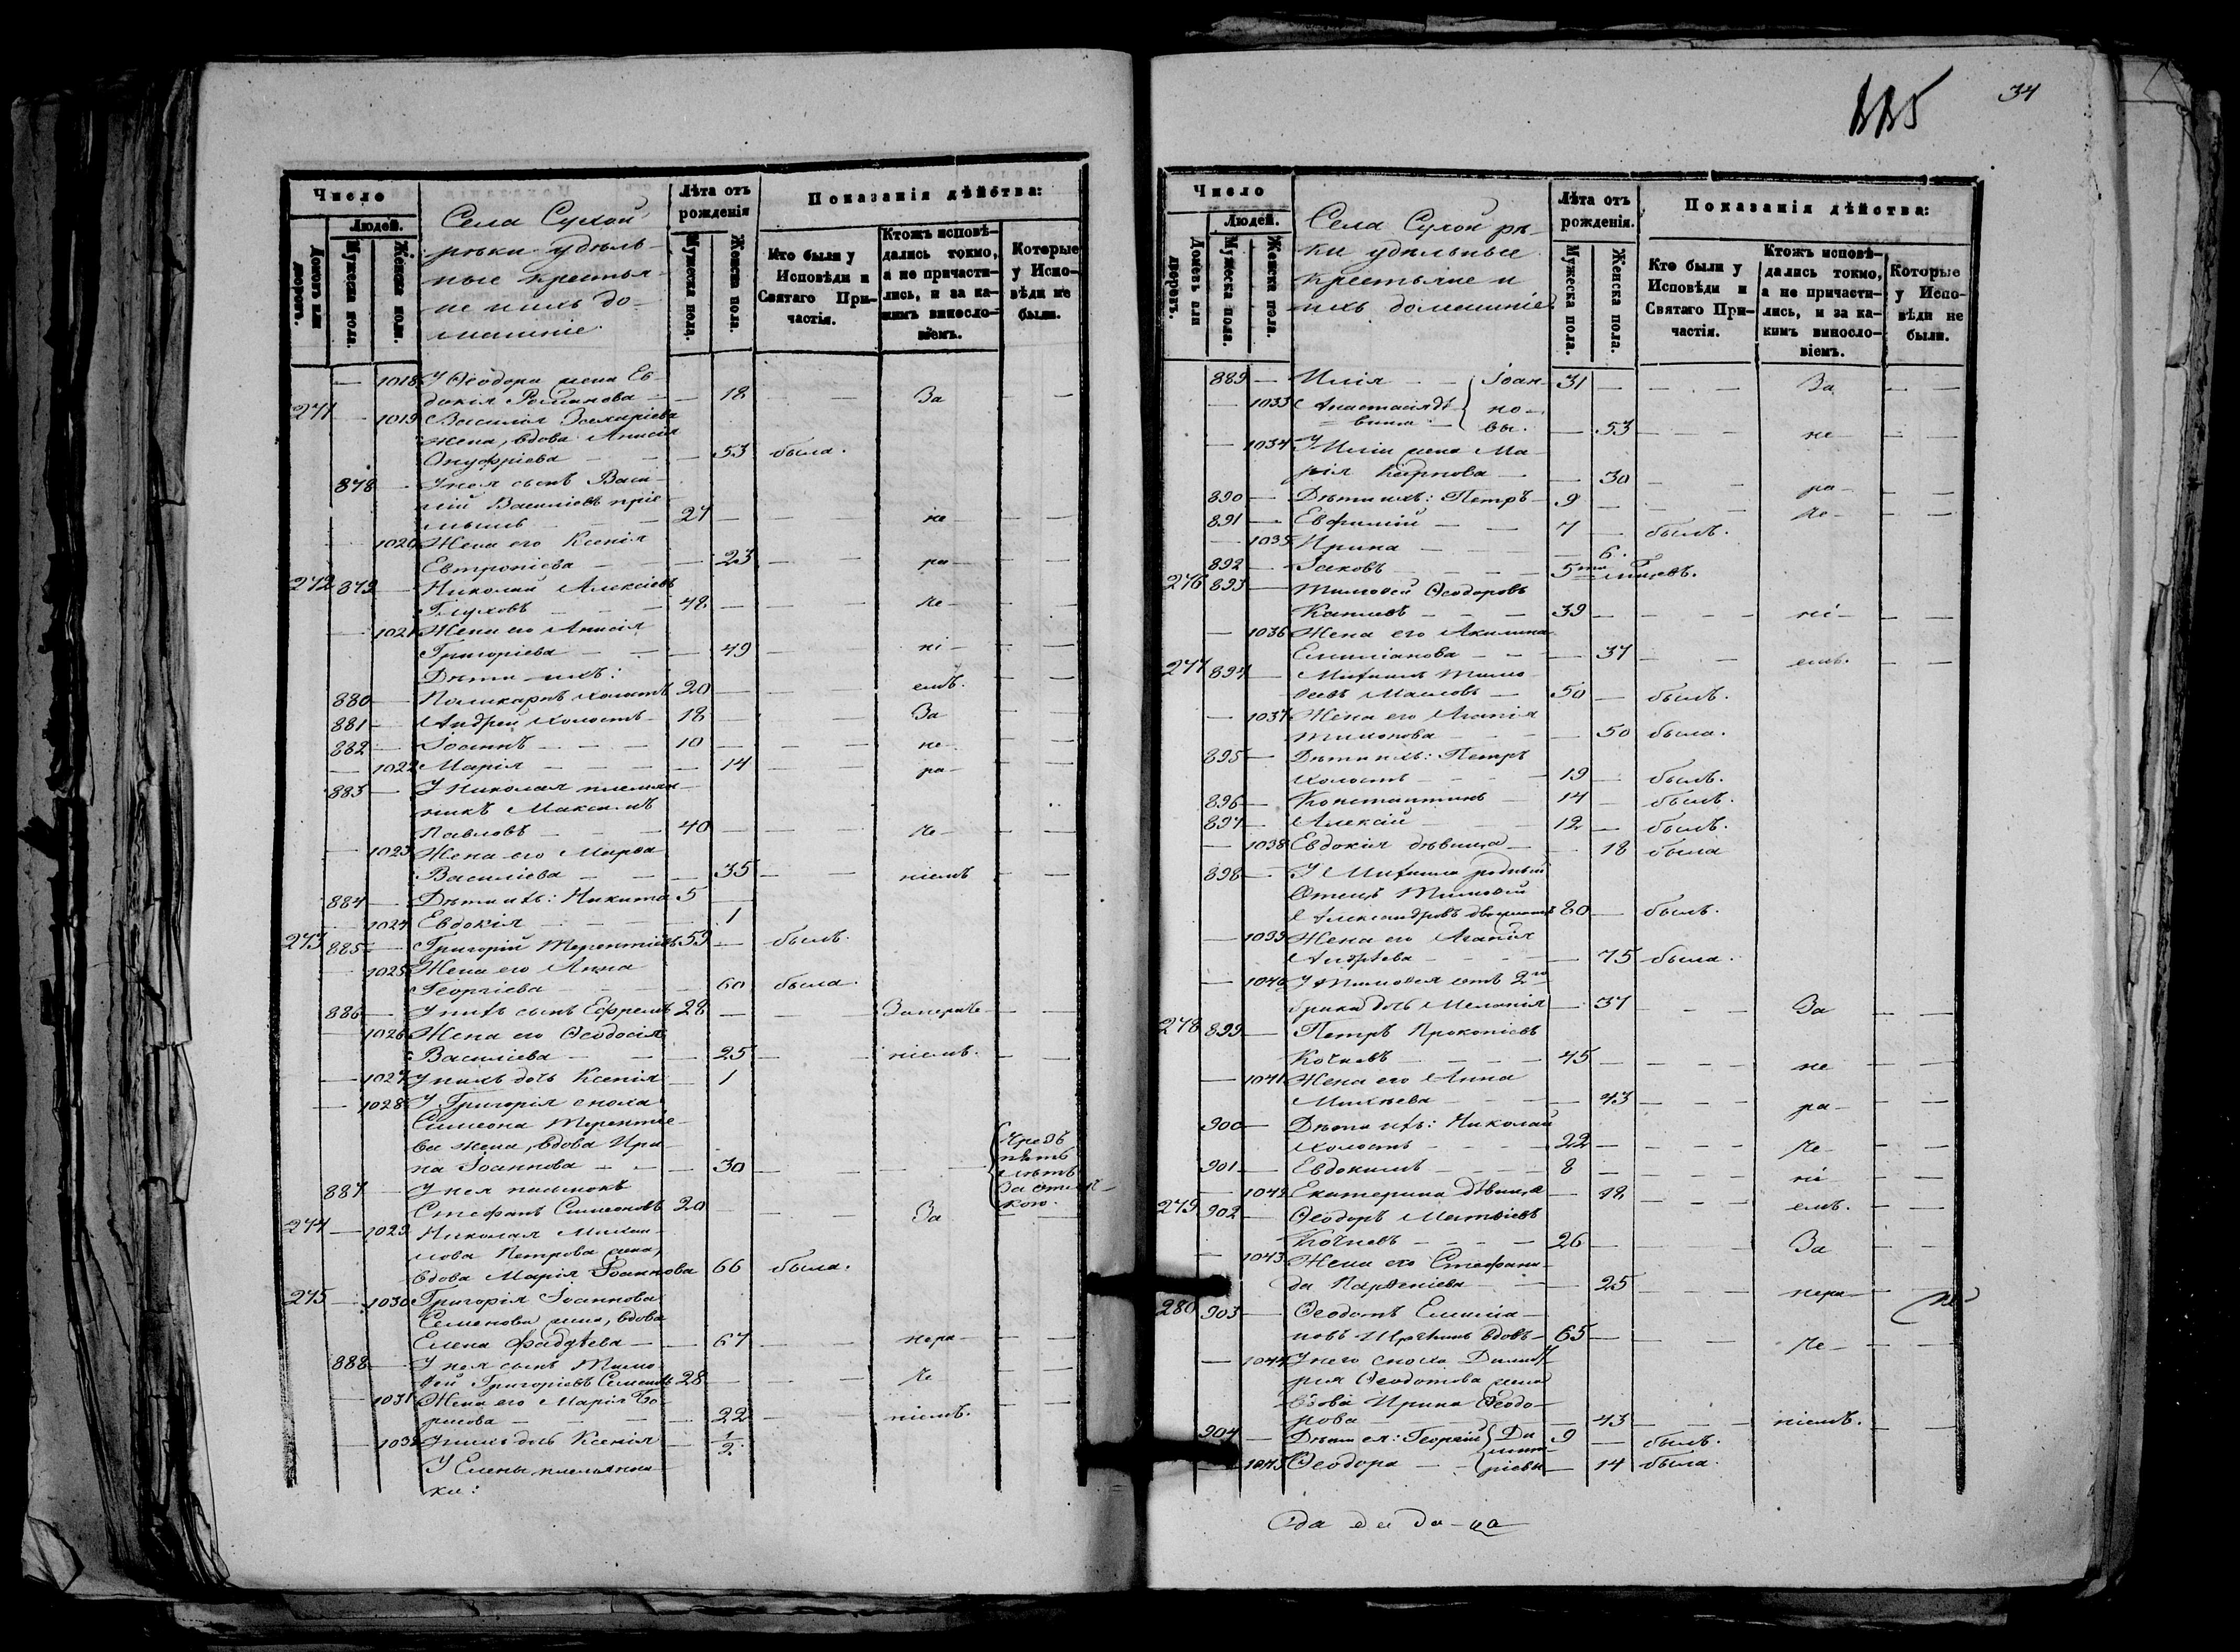 Число
Людей.
Домовъ или дворовъ.
Мужеска пола.
Женска пола.
Села Сухой
рѣки удѣль-
ные крестья-
не и ихъ до-
машніе.
Лѣта отъ
рожденія
Мужеска пола.
Женска пола.
Показанія дѣйства:
Кто были у
Исповѣди и
Святаго При-
частія.
Ктожъ исповѣ-
дались токмо,
а не причасти-
лись, и за ка-
кимъ винословіемъ.
Которые
у Испо-
вѣди не
были.
— 1018 У Ѳеодора жена Ев-
докія Романова — — 18 — — За —
271 — 1019 Василія Захаріева
жена, вдова Анисія
Онуфріева — — — 53 была.
878 — У нея сынъ Васи-
лій Василіевъ пріе-
мышъ — — 27 — — — не — —
— 1020 Жена его Ксенія
Евтропіева — — 23 — — ра — —
272 879 — Николай Алексіевъ
Глуховъ — — — 48 — — — че — —
— 1021 Жена его Анисія
Григоріева — — — 49 — — ні — —
Дѣти ихъ:
880 — Поликарпъ холостъ 20 — — емъ. — —
881 — Андрей холостъ — 18 — — За — —
882 — Іоаннъ — — — 10 — — — не — —
— 1022 Марія — — — — 14 — — ра — —
883 — У Николая племян-
никъ Максимъ
Павловъ — — — 40 — — — че — —
— 1023 Жена его Марѳа
Василіева — — — 35 — — ніемъ — —
884 — Дѣти ихъ: Никита 5 —
— 1024 Евдокія — — — 1
273 885 — Григорій Терентіевъ 59 — былъ.
— 1025 Жена его Анна
Георгіева — — — 60 была.
886 — У нихъ сынъ Ефремъ 28 — — — За нераче — —
— 1026 Жена его Ѳеодосія
Василіева — — — 25 — — ніемъ. — —
— 1027 У нихъ дочь Ксенія — 1
— 1028 У Григорія сноха
Симеона Терентіе-
ва жена, вдова Ири-
на Іоаннова — — — 30 — — — Чрезъ
пять
лѣтъ
За отлуч-
кою.
887 — У нея пасынокъ
Стефанъ Симеоновъ 20 — — — За — —
274 — 1029 Николая Михаи-
лова Петрова жена,
вдова Марія Іоаннова 66 была.
275 — 1030 Григорія Іоаннова
Семенова жена, вдова
Елена Фадѣева — — 67 — — нера — —
888 — У нея сынъ Тимо-
ѳей Григоріевъ Семеновъ 28 — — — че — —
— 1031 Жена его Марія Бо-
рисова — — — — 22 — — ніемъ. — —
— 1032 У нихъ дочь Ксенія — 1/2.
У Елены племянни-
ки:
34
Число
Людей.
Домовъ или дворовъ.
Мужеска пола.
Женска пола.
Села Сухой рѣ-
ки удѣльные
крестьяне и
ихъ домашніе.
Лѣта отъ
рожденія.
Мужеска пола.
Женска пола.
Показанія дѣйства:
Кто были у
Исповѣди и
Святаго При-
частія.
Ктожъ исповѣ-
дались токмо,
а не причасти-
лись, и за ка-
кимъ винословіемъ.
Которые
у Испо-
вѣди не
были.
889 — Илія — — Іоан- 31 — — — За — —
— 1033 Анастасія дѣ- но-
вица — вы. — 53 — — не — —
— 1034 У Иліи жена Ма-
рія Карпова — — 30 — — ра — —
890 — Дѣти ихъ: Петръ — 9 — — — че — —
891 — Евфимій — — 7 — былъ.
— 1035 Ирина — — — — 6.
892 — Іаковъ — — — — 5ти мѣсяцевъ.
276 893 — Тимоѳей Ѳеодоровъ
— — — 39 — — — ні — —
— 1036 Жена его Акилина
Емиліанова — — — 37 — — емъ. — —
277 894 — Михаилъ Тимо-
ѳеевъ Масловъ — 50 — былъ.
— 1037 Жена его Агапія
Тимонова — — — — 50 была.
895 — Дѣти ихъ: Петръ
холостъ — — — 19 — былъ.
896 — Константинъ — 14 — былъ.
897 — Алексій — — — 12 — былъ.
— 1038 Евдокія дѣвица — — 18 была
898 — У Михаила родный
отецъ Тимоѳей
Александровъ двоеженъ 80 — былъ.
— 1039 Жена его Агапія
Андрѣева — — — — 75 была.
— 1040 У Тимоѳея отъ 2го
брака дочь Меланія — 37 — — — За — —
278 899 — Петръ Прокопіевъ
Кочневъ — — — — 45 — — — не — —
— 1041 Жена его Анна
Михѣева — — — — 43 — — ра — —
900 — Дѣти ихъ: Николай
холостъ — — — 22 — — — че — —
901 — Евдокимъ — — — 8 — — — ні — —
— 1042 Екатерина дѣвица — 18 — — емъ. — —
279 902 — Ѳеодоръ Матвіевъ
Кочневъ — — — 26 — — — За — —
— 1043 Жена его Стефани-
да Парѳеніева — — 25 — — нера — —
280 903 — Ѳеодотъ Емилиа-
новъ вдовъ — 65 — — — че — —
— 1044 У него сноха Димит-
рія Ѳеодотова жена
вдова Ирина Ѳеодо-
рова — — — — 43 — — ніемъ. — —
904 — Дѣти ея: Георгій Ди- 9 — былъ.
мит-
— 1045 Ѳеодора — — ріевы — 14 была.